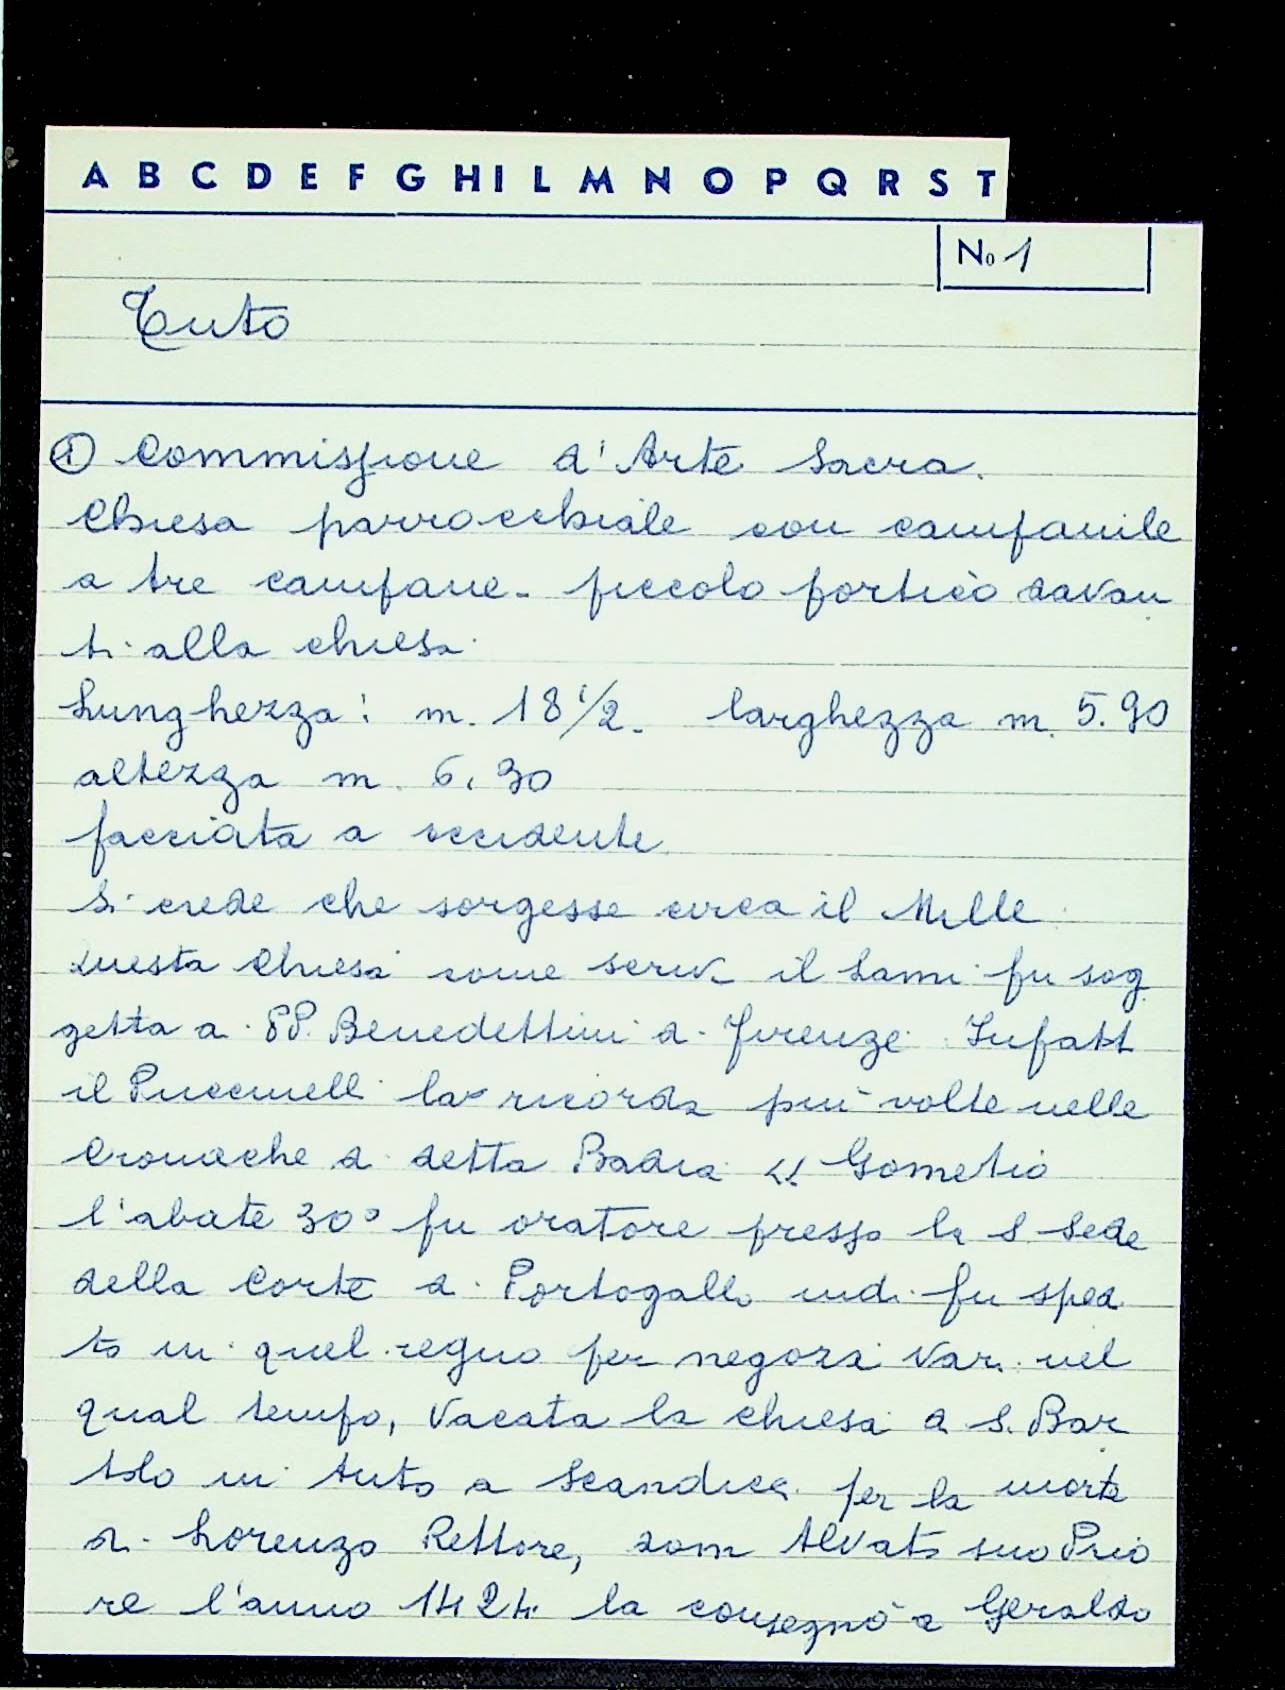 A B C D E F G H I L M N O P Q R S T
No 1
Tuto
① Commissione d'Arte Sacra.
Chiesa parrocchiale con campanile
a tre campane - piccolo portico davan
ti alla chiesa.
Lunghezza: m. 18 1/2. larghezza m. 5.90
altezza m. 6.30
facciata a occidente
Si crede che sorgesse circa il Mille.
Questa Chiesa come scriv il Lami fu sog
getta a PP. Benedettini di Firenze. Infatti
il Puccinelli la ricorda più volte nelle
Cronache di detta Badia « Gometio
l'abate 30° fu oratore presso la S. Sede
della Corte di Portogallo indi fu spedi
to in quel regno per negozi vari nel
qual tempo, vacata la chiesa di S. Bar
tolo in Tuto a Scandicci per la morte
di Lorenzo Rettore, dom Alvato suo Prio
re l'anno 1424 la consegnò a Geraldo